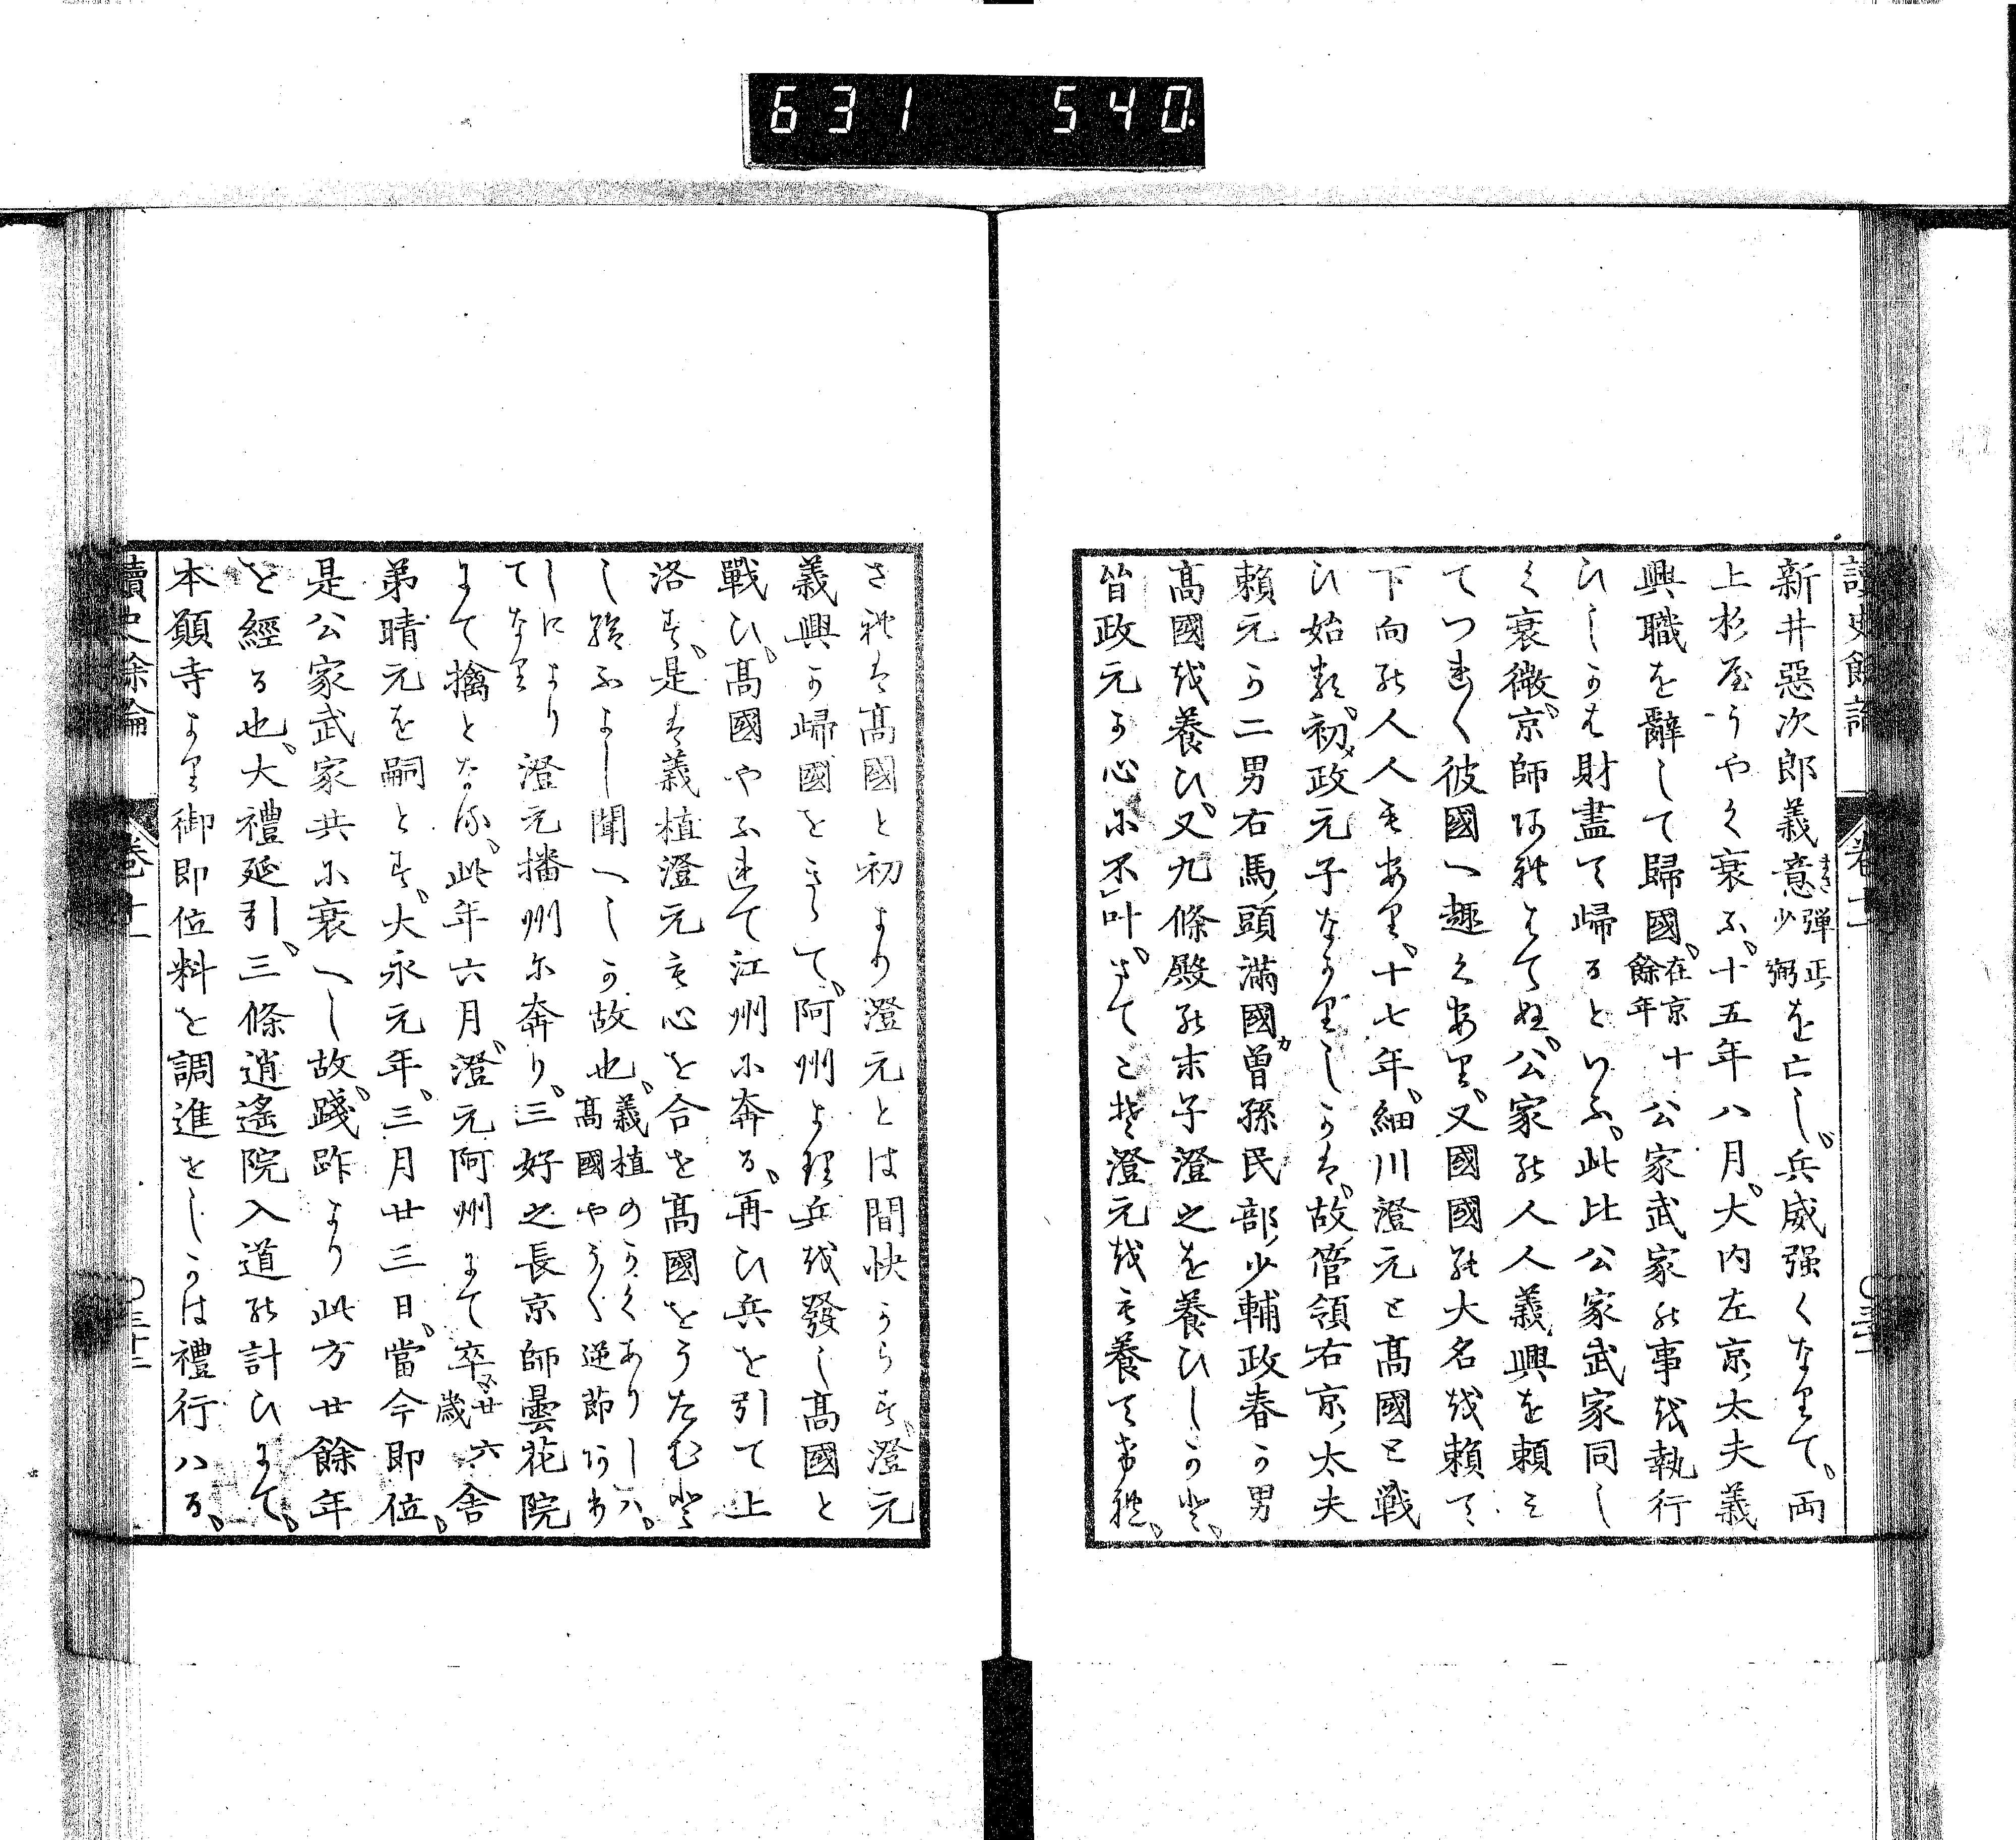 631 540.
讀史餘論 卷十一
新井惡次郎義意まさ弾正少弼を亡し、兵威强くなりて、両
上杉屋うやく衰ふ、十五年八月、大内左京太夫義
興職を辭して歸國、在京十餘年公家武家の事を執行
ひしかは財盡て歸るといふ、此比公家武家同し
く衰微、京師にはてぬ、公家の人人義興を頼み
てつれ〱彼國へ趣くあり、又國國の大名を頼て
下向の人人もあり、十七年、細川澄元と髙國と戦
ひ始る、初メ政元子なかりしかは、故管領右京太夫
頼元か二男右馬頭滿國カ曽孫民部少輔政春か男
髙國を養ひ、又九條殿の末子澄之を養ひしかと、
皆政元か心に不叶、さてこそ澄元をも養てけれ、
されは髙國と初より澄元とは間快からす、澄元
義興か歸國をきゝて、阿州より兵を發し髙國と
戰ひ、髙國やふれて江州に奔る、再ひ兵を引て上
洛す、是は義植澄元も心を合せ髙國をうたむと
し給ふよし聞へしか故也、義植のかくありしハ、髙國やうく逆節あり
しによりてなり澄元播州に奔り、三好之長京師曇花院
にて擒となる、此年六月、澄元阿州にて卒廿六歳舎
弟晴元を嗣とす、大永元年、三月廿三日、當今即位、
是公家武家共に衰へし故、踐祚より此方廿餘年
を經る也、大禮延引、三條逍遙院入道の計ひにて、
本願寺より御即位料を調進をしかは禮行ハる、
讀史餘論 卷十一